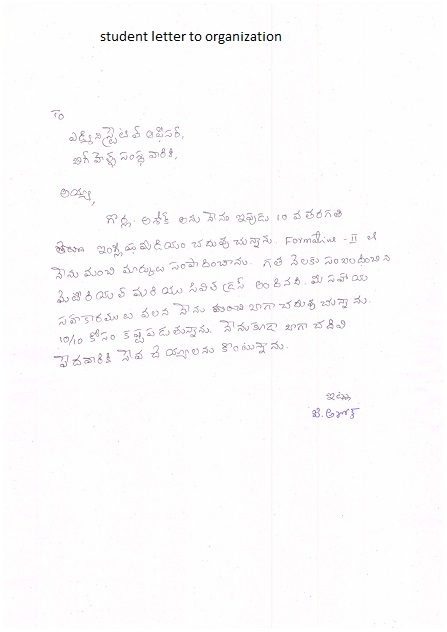 student letter to organization
To
ఎడ్మినిస్ట్రేటివ్ ఆఫీసర్,
బిగ్ హెల్ప్ సంస్థ వారికి,
అయ్యా,
గొర్ల అశోక్ అను నేను ఇపుడు 10 వ తరగతి
ఇంగ్లీషు మీడియం చదువుచున్నాను. Formative - II లో
నేను మంచి మార్కులు సంపాదించాను. గత నెలకు సంబంధించిన
మెటీరియల్ మరియు సివిల్ డ్రస్ అందినది. మీ సహాయ
సహకారముల వలన నేను బాగా చదువుచున్నాను.
10/10 కోసం కష్టపడుతున్నాను. నేను కూడా బాగా చదివి
పేదవారికి సేవ చేయ్యాలను కొంటున్నాను.
ఇట్లు
జి. అశోక్